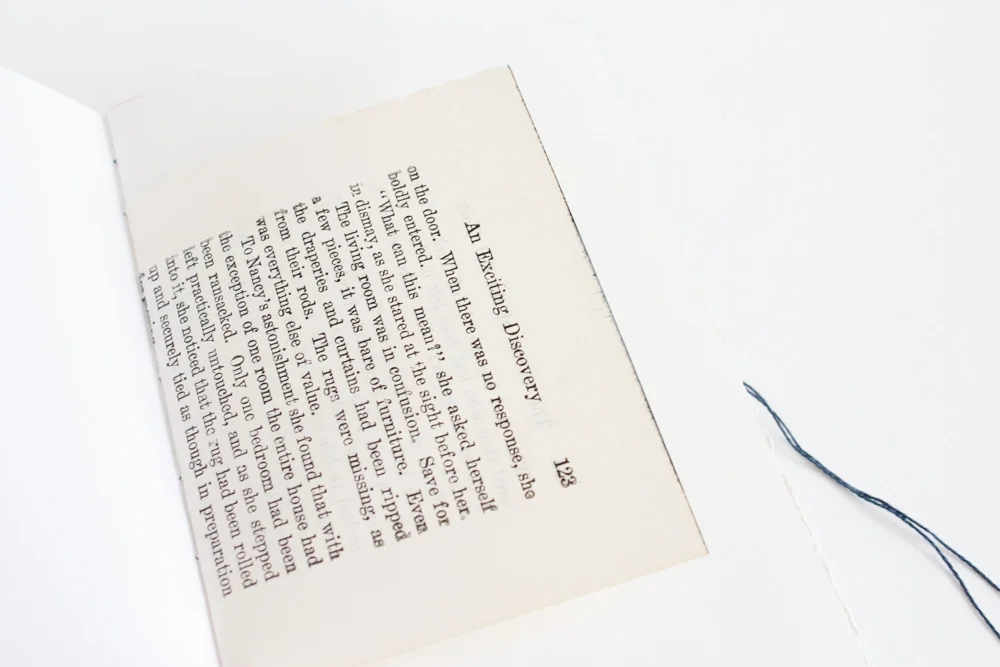 An Exciting Discovery 123
on the door. When there was no response, she
boldly entered.
"What can this mean?" she asked herself
in dismay, as she stared at the sight before her.
The living room was in confusion. Save for
a few pieces, it was bare of furniture. Even
the draperies and curtains had been ripped
from their rods. The rugs were missing, as
was everything else of value.
To Nancy's astonishment she found that with
the exception of one room the entire house had
been ransacked. Only one bedroom had been
left practically untouched, and as she stepped
into it, she noticed that the rug had been rolled
up and securely tied as though in preparation